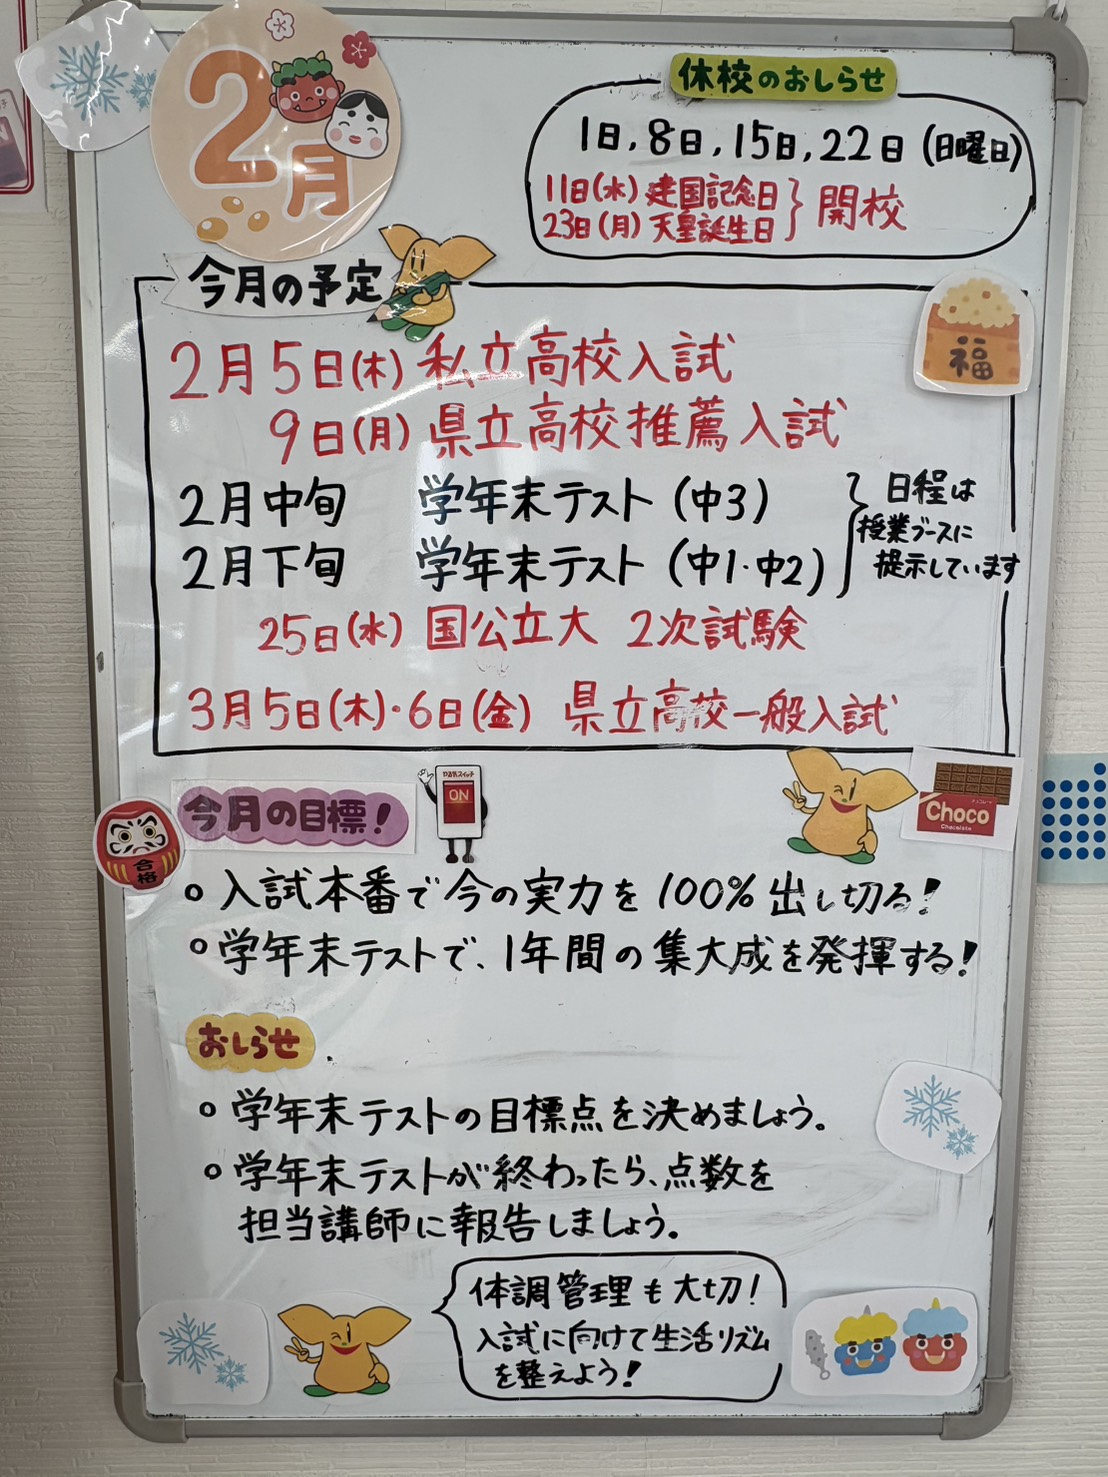 2月
休校のおしらせ
1日,8日,15日,22日(日曜日)
11日(水)建国記念日
23日(月)天皇誕生日
開校
今月の予定
福
2月5日(木)私立高校入試
9日(月)県立高校推薦入試
2月中旬 学年末テスト(中3)
2月下旬 学年末テスト(中1・中2)
日程は
授業ブースに
提示しています
25日(水)国公立大 2次試験
3月5日(木)・6日(金)県立高校一般入試
今月の目標!
やる気スイッチ
ON
チョコレート
Choco
Chocolate
合格
○入試本番で今の実力を100%出し切る!
○学年末テストで、1年間の集大成を発揮する!
おしらせ
○学年末テストの目標点を決めましょう。
○学年末テストが終わったら、点数を
担当講師に報告しましょう。
体調管理も大切!
入試に向けて生活リズム
を整えよう!